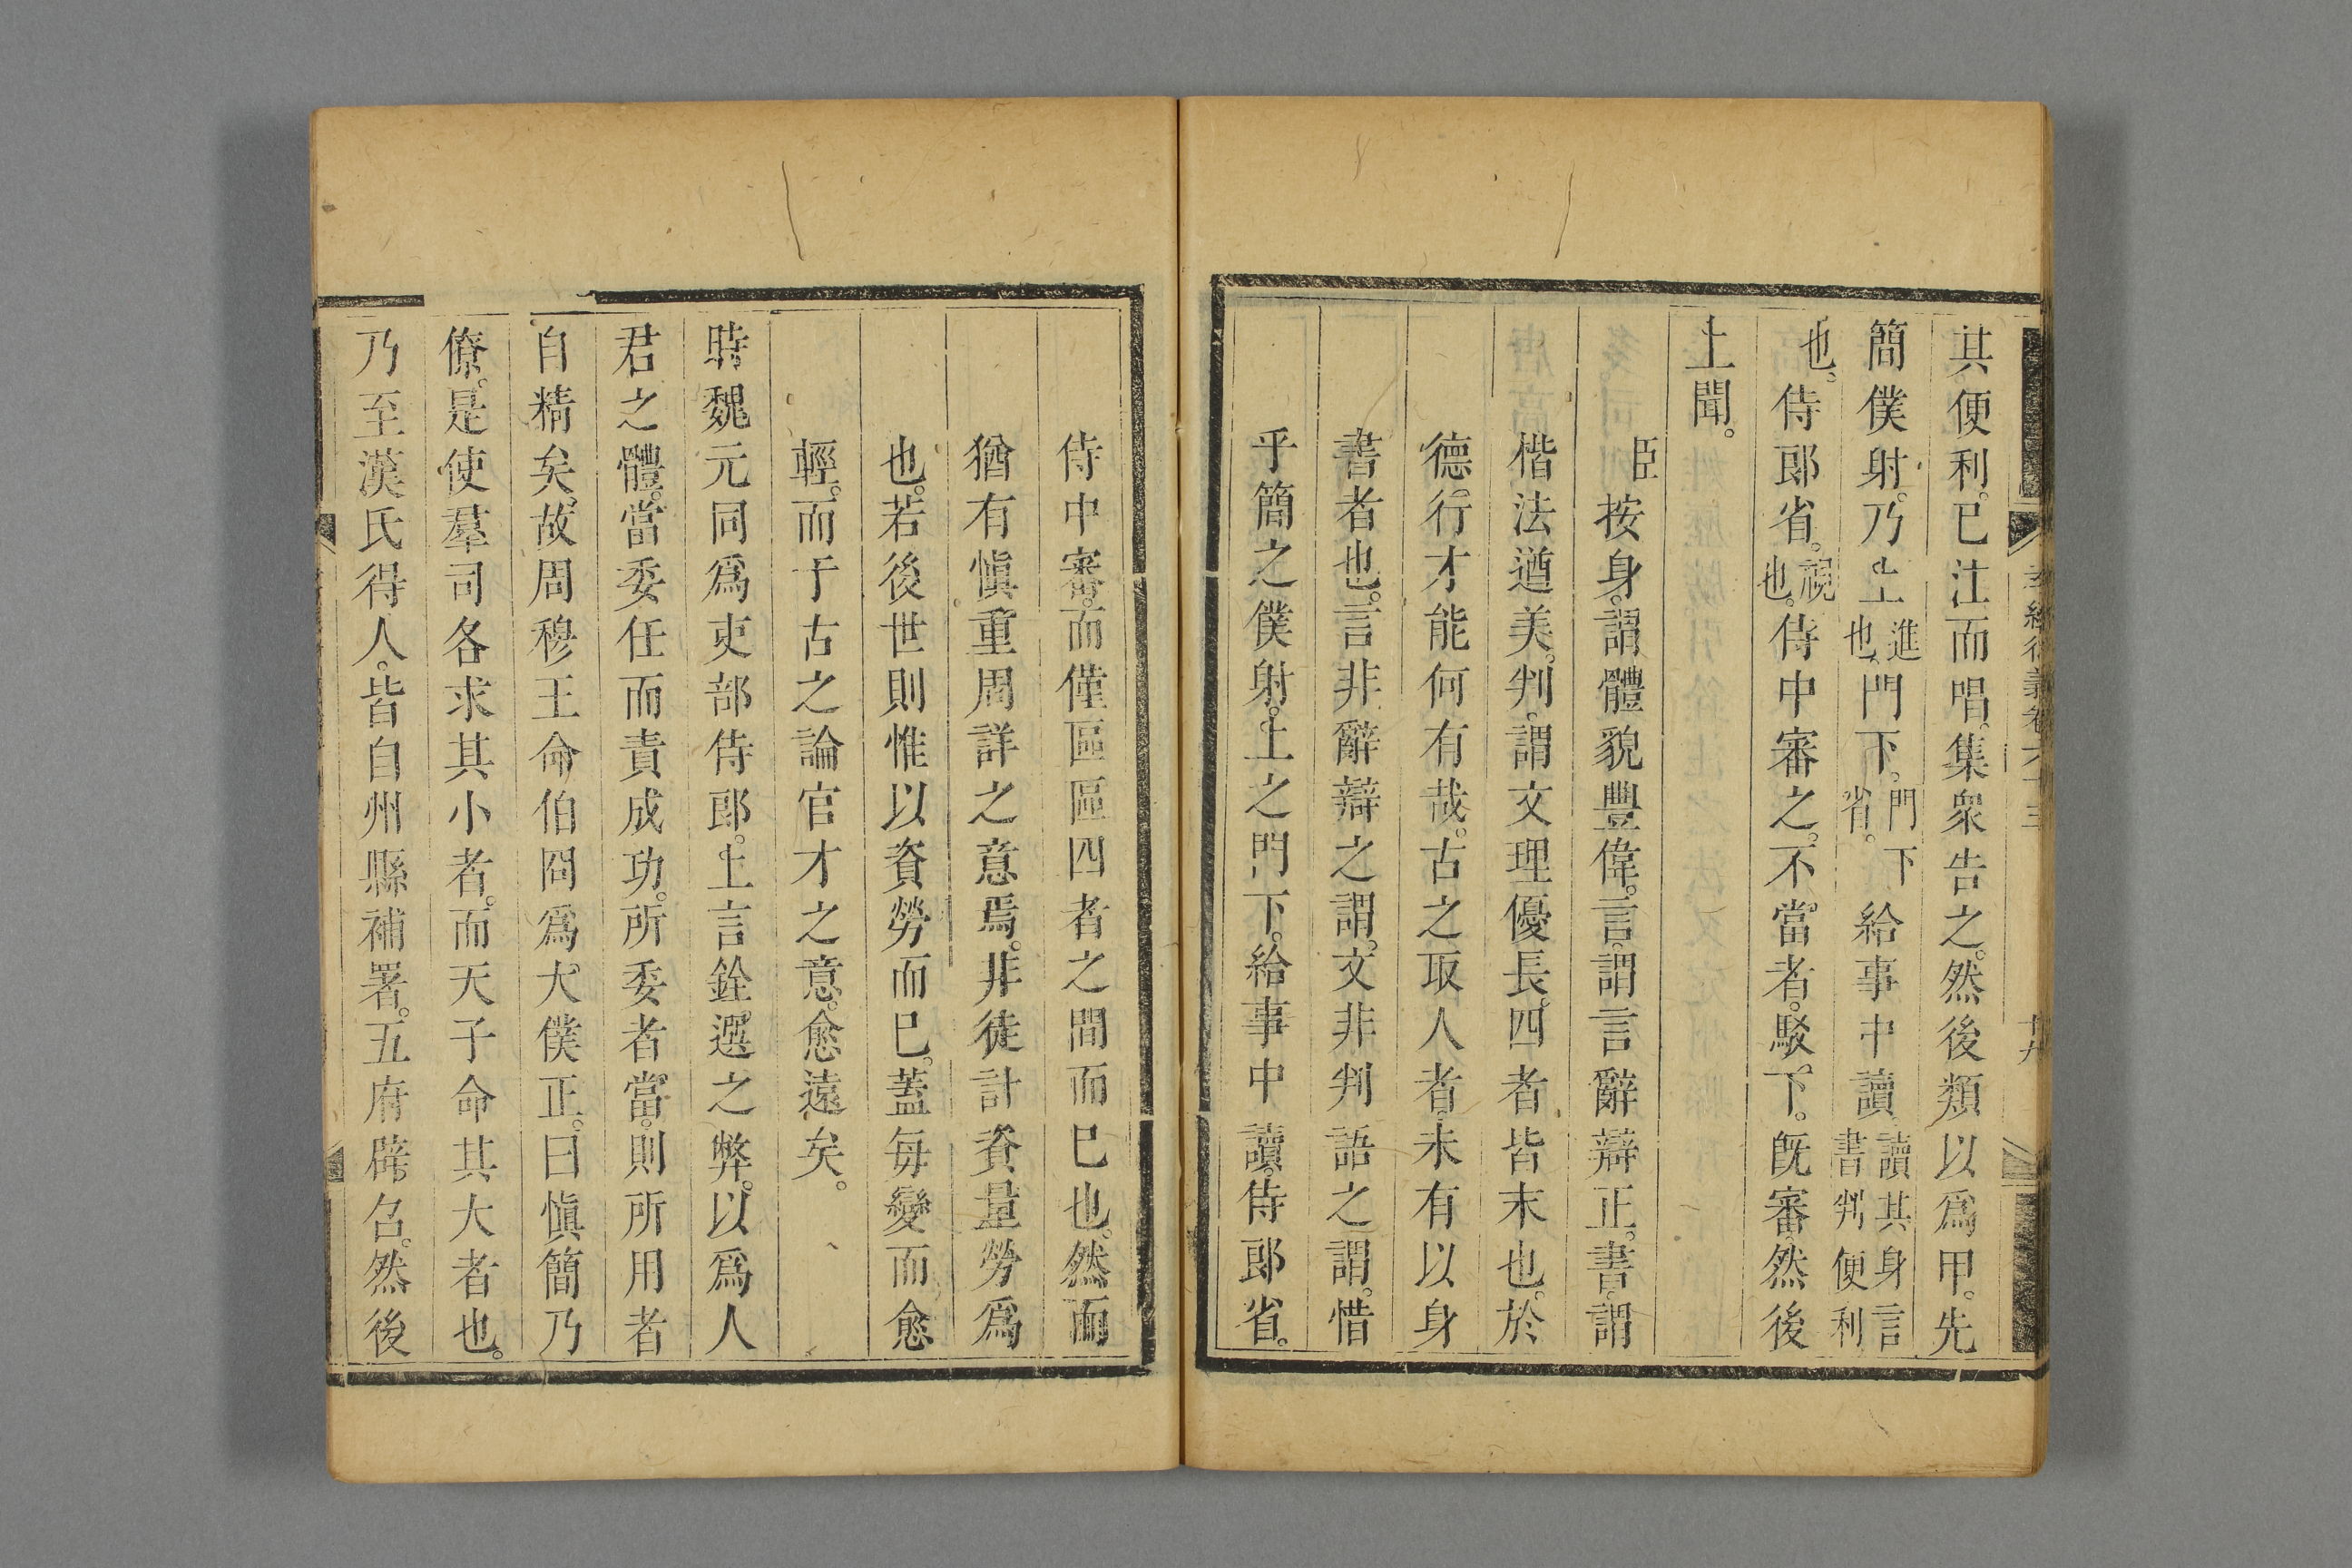 其便利。已注而唱。集衆告之。然後類以爲甲。先
簡僕射。乃上進也門下。門下省。給事中讀。讀其身言書判便利
也。侍郎省。視也。侍中審之。不當者。駁下。旣審。然後
上聞。
臣按身。謂體貌豐偉。言。謂言辭辯正。書。謂
楷法遒美。判。謂文理優長。四者皆末也。於
德。行才能何有哉。古之取人者。未有以身
書者也。言非辭辯之謂。文非判語之謂。惜
乎簡之僕射。上之門下。給事中讀。侍郎省。
侍中審。而僅區區四者之間而已也。然而
猶有愼重周詳之意焉。非徒計資量勞爲
也。若後世則惟以資勞而已。蓋每變而愈
輕。而于古之論官才之意。愈遠矣。
時魏元同爲吏部侍郎。上言銓選之弊。以爲人
君之體。當委任而責成功。所委者當。則所用者
自精矣。故周穆王命伯冏爲大僕正。曰愼簡乃
僚。是使羣司各求其小者。而天子命其大者也。
乃至漢氏得人。皆自州縣補署。五府辟召。然後